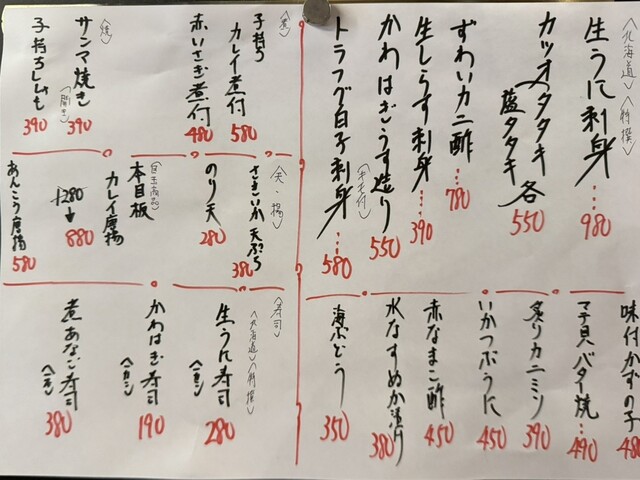 〈北海道〉〈特撰〉
生うに刺身…980
カツオタタキ
藁タタキ 各550
ずわいカニ酢…780
生しらす刺身…390
かわはぎうす造り 550
〈キモ付〉
トラフグ白子刺身…580
味付かずの子 480
マテ貝バター焼…490
炙りカニミソ 390
いかつぶうに 450
赤なまこ酢 450
水なすぬか漬り 380
海ぶどう 350
〈煮〉
子持ちカレイ煮付 580
赤いさき煮付 480
〈焼〉
サンマ焼き 390
〈開き〉
子持ちししゃも 390
〈天・揚〉
さきいか天ぷら 380
のり天 280
〈目玉商品〉
本日板カレイ唐揚
1280→880
あんこう唐揚 580
〈寿司〉
〈北海道〉〈特撰〉
生うに寿司〈一カン〉280
かわはぎ寿司〈一カン〉190
煮あなご寿司〈一本〉380